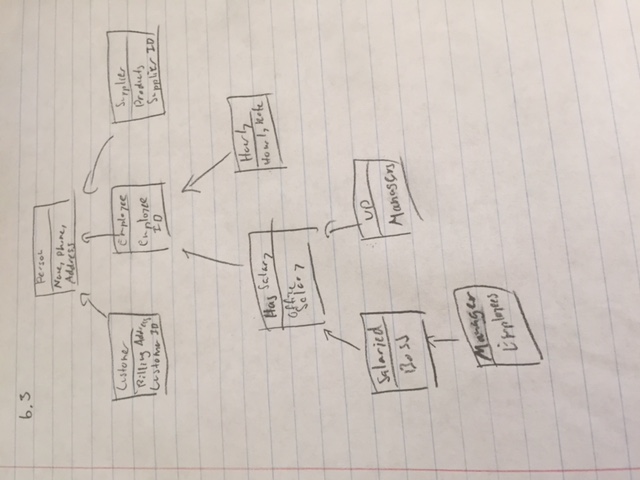 6.3
Person
Name, Phone,
Address
Customer
Billing Address
Customer ID
Employee
Employee
ID
Supplier
Products
Supplier ID
Has Salary
Office
Salary
Hourly
Hourly Rate
Salaried
Boss
VP
Managers
Manager
Employees